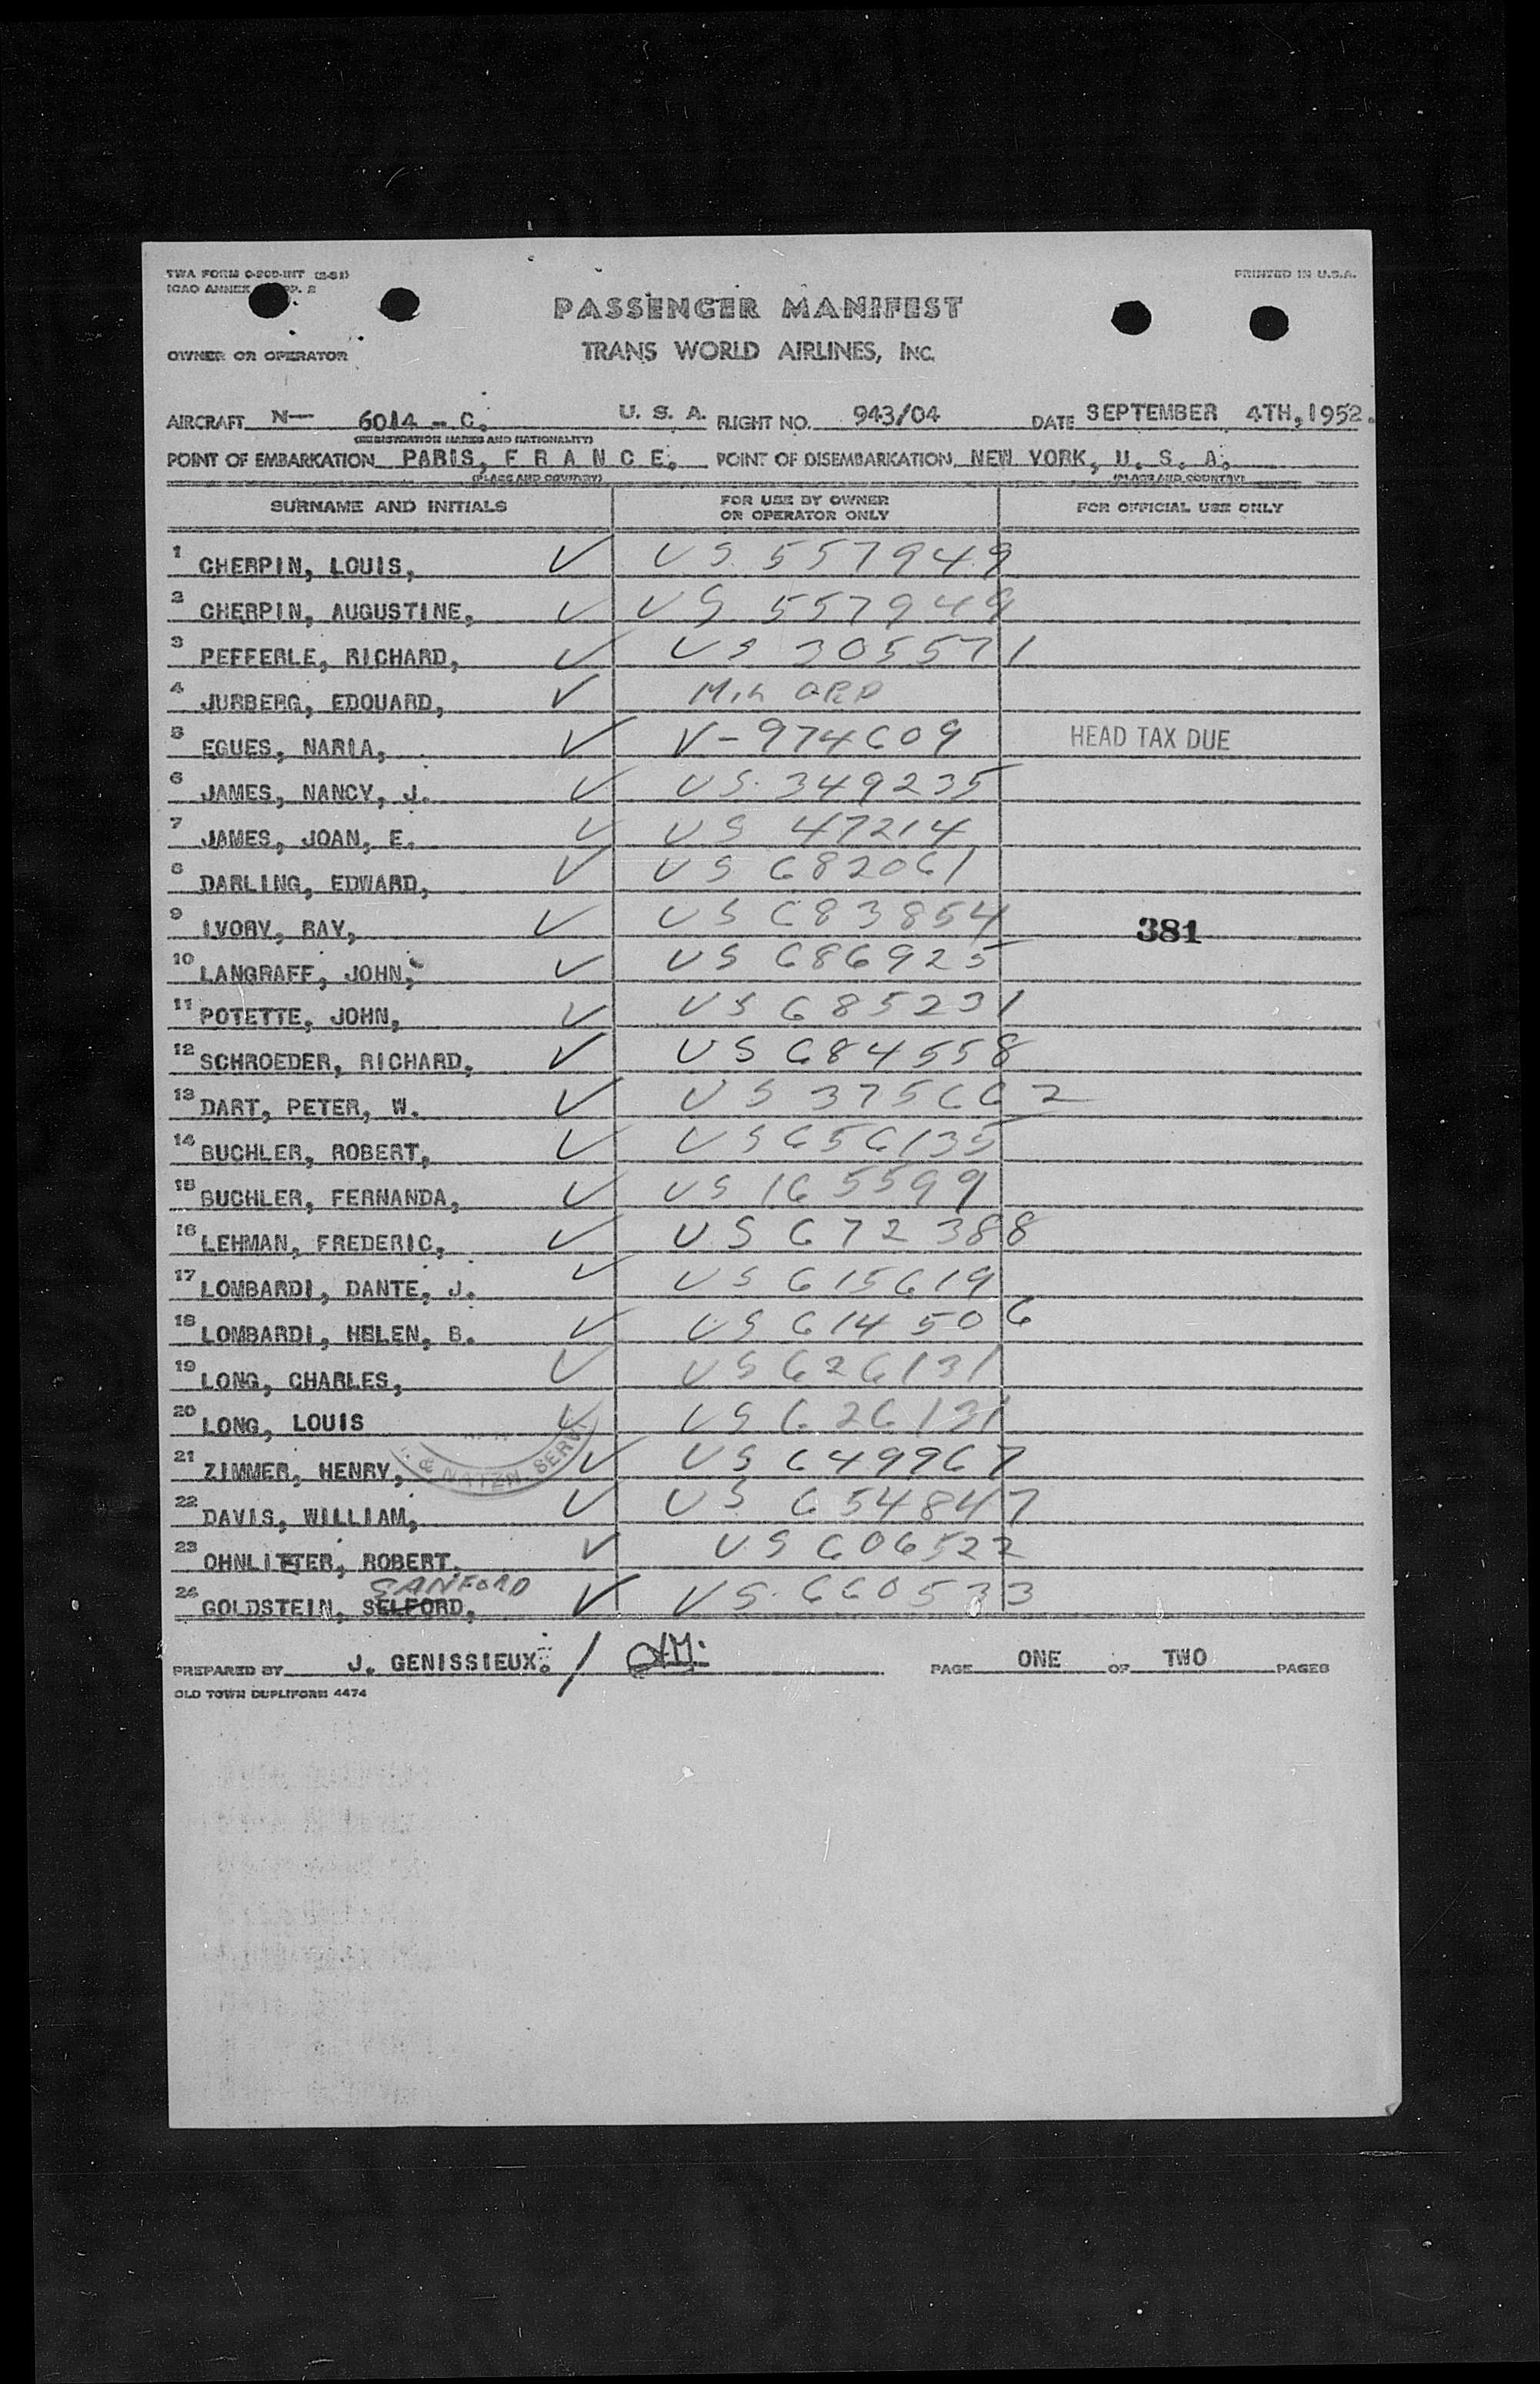 TWA FORM O-200-INT (2-51)
PRINTED IN U.S.A.
ICAO ANNEX PP. 2
PASSENGER MANIFEST
OWNER OR OPERATOR
TRANS WORLD AIRLINES, INC.
AIRCRAFT N— 6014 - C. U. S. A. FLIGHT NO. 943/04 DATE SEPTEMBER 4TH, 1952.
(REGISTRATION MARKS AND NATIONALITY)
POINT OF EMBARKATION PARIS, F R A N C E. POINT OF DISEMBARKATION NEW YORK, U. S. A.
(PLACE AND COUNTRY) (PLACE AND COUNTRY)
SURNAME AND INITIALS FOR USE BY OWNER OR OPERATOR ONLY FOR OFFICIAL USE ONLY
1 CHERPIN, LOUIS, ✓ US 557949
2 CHERPIN, AUGUSTINE, ✓ US 557949
3 PEFFERLE, RICHARD, ✓ US 305571
4 JURBERG, EDOUARD, ✓
5 EGUES, NARIA, ✓ V-974609 HEAD TAX DUE
6 JAMES, NANCY, J. ✓ US 349235
7 JAMES, JOAN, E. ✓ US 47214
8 DARLING, EDWARD, ✓ US 682061
9 IVORY, RAY, ✓ US 683854 381
10 LANGRAFF, JOHN, ✓ US 686925
11 POTETTE, JOHN, ✓ US 685231
12 SCHROEDER, RICHARD, ✓ US 684558
13 DART, PETER, W. ✓ US 375662
14 BUCHLER, ROBERT, ✓ US 656135
15 BUCHLER, FERNANDA, ✓ US 165599
16 LEHMAN, FREDERIC, ✓ US 672388
17 LOMBARDI, DANTE, J. ✓ US 615619
18 LOMBARDI, HELEN, B. ✓ US 614506
19 LONG, CHARLES, ✓ US 626131
20 LONG, LOUIS ✓ US 626131
21 ZIMMER, HENRY, ✓ US 649967
& NATZN. SERVI
22 DAVIS, WILLIAM, ✓ US 654847
23 OHNLITTER, ROBERT. ✓ US 606522
SANFORD
24 GOLDSTEIN, SELFORD, ✓ US 660533
PREPARED BY J. GENISSIEUX. / PAGE ONE OF TWO PAGES
OLD TOWN DUPLIFORM 4474